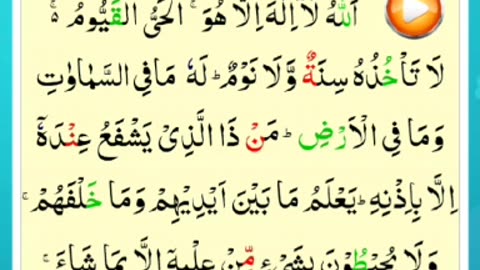 اَللّٰهُ لَاۤ اِلٰهَ اِلَّا هُوَ ۚ اَلْحَیُّ الْقَیُّوْمُ ۚ۬
لَا تَاْخُذُهٗ سِنَةٌ وَّ لَا نَوْمٌ ؕ لَهٗ مَا فِی السَّمٰوٰتِ
وَ مَا فِی الْاَرْضِ ؕ مَنْ ذَا الَّذِیْ یَشْفَعُ عِنْدَهٗۤ
اِلَّا بِاِذْنِهٖ ؕ یَعْلَمُ مَا بَیْنَ اَیْدِیْهِمْ وَ مَا خَلْفَهُمْ ۚ
وَ لَا یُحِیْطُوْنَ بِشَیْءٍ مِّنْ عِلْمِهٖۤ اِلَّا بِمَا شَآءَ ۚ